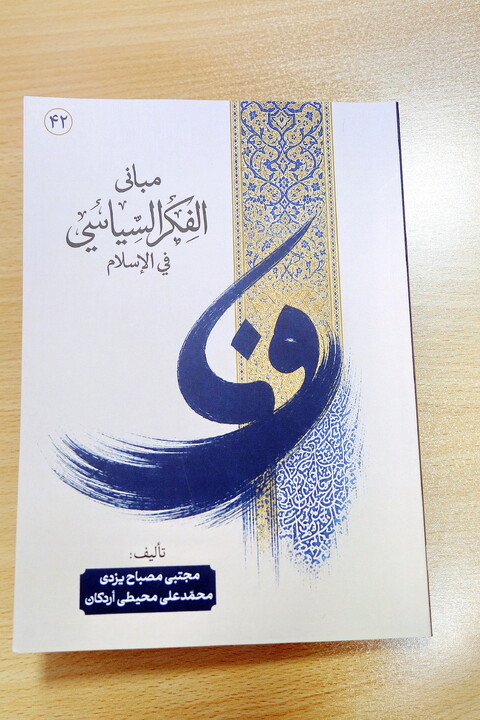 ۴۲
مبانی
الفِكْر السِّياسي
في الإسلام
تأليف:
مجتبی مصباح یزدی
محمّدعلی محیطی أردکان